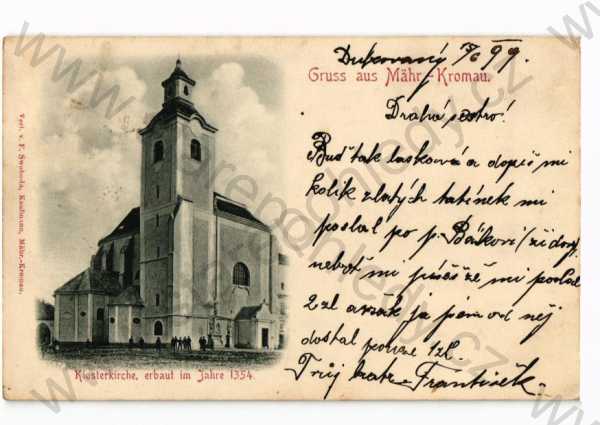 Dukovaný 7/6 99.
Gruss aus Mähr.-Kromau.
Drahá sestro!
Buď tak laskavá a dopiš mi
kolik zlatých tatínek mi
poslal po p.
neboť mi píšeš že mi poslal
2 zl a však já jsem od něj
dostal pouze 1 zl.
Tvůj bratr František
Klosterkirche, erbaut im Jahre 1354.
Verl. v. F. Swoboda, Kaufmann, Mähr.-Kromau.